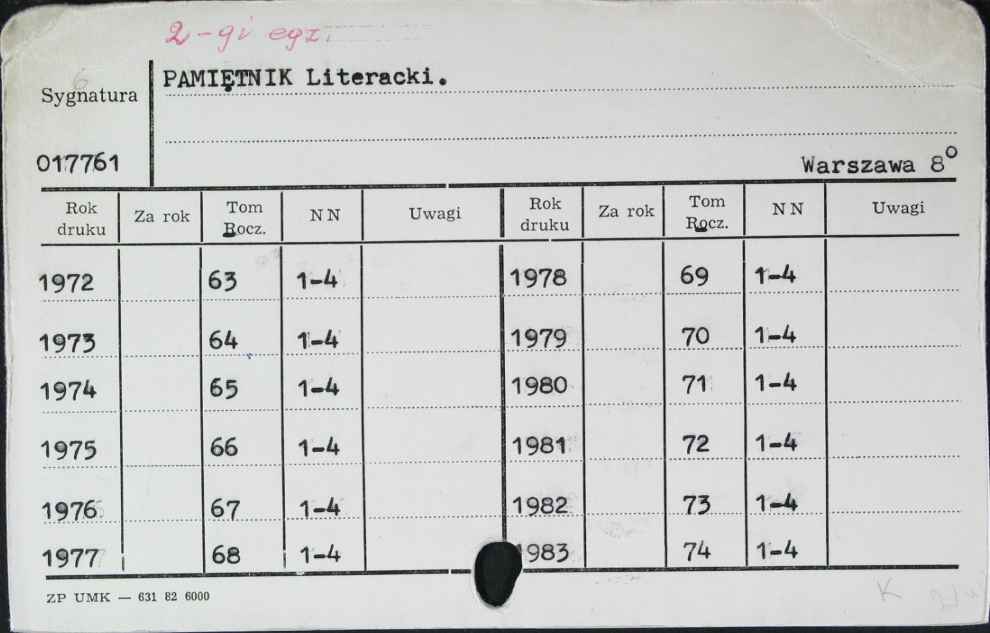 2-gi egz.
PAMIĘTNIK Literacki.
Sygnatura
017761
Warszawa 8°
Rok druku Za rok Tom Rocz. NN Uwagi Rok druku Za rok Tom Rocz. NN Uwagi
1972 63 1-4 1978 69 1-4
1973 64 1-4 1979 70 1-4
1974 65 1-4 1980 71 1-4
1975 66 1-4 1981 72 1-4
1976 67 1-4 1982 73 1-4
1977 68 1-4 1983 74 1-4
ZP UMK — 631 82 6000
K